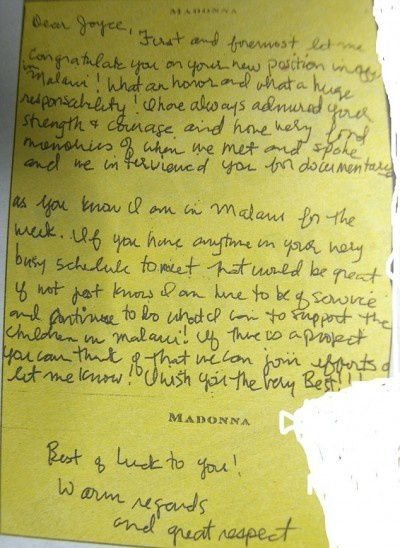 MADONNA
Dear Joyce,
First and foremost let me
congratulate you on your new position in
in Malawi! What an honor and what a huge
responsability! I have always admired your
strength & courage and have very fond
memories of when we met and spoke
and we interviewed you for documentary
as you know I am in Malawi for the
week. If you have anytime in your very
busy schedule to meet that would be great
if not just know I am here to be of service
and continue to do what I can to support the
children in malawi! If there is a project
you can think of that we can join efforts
let me know! I wish you the very Best!!!
MADONNA
Best of luck to you!
Warm regards
and great respect